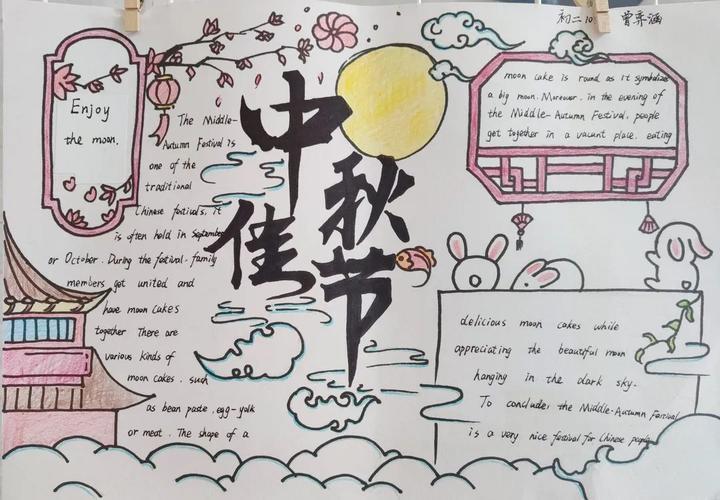 初二10 曾弈涵
Enjoy
the moon.
中秋佳节
The Middle-
Autumn Festival is
one of the
traditional
Chinese festivals, it
is often held in September
or October. During the festival. family
members get united and
have moon cakes
together There are
various kinds of
moon cakes. such
as bean paste, egg-yolk
or meat. The shape of a
moon cake is round as it symbolizes
a big moon. Moreover. in the evening of
the Middle-Autumn Festival, people
get together in a vacant place, eating
delicious moon cakes while
appreciating the beautiful moon
hanging in the dark sky.
To conclude, the Middle-Autumn Festival
is a very nice festival for Chinese people